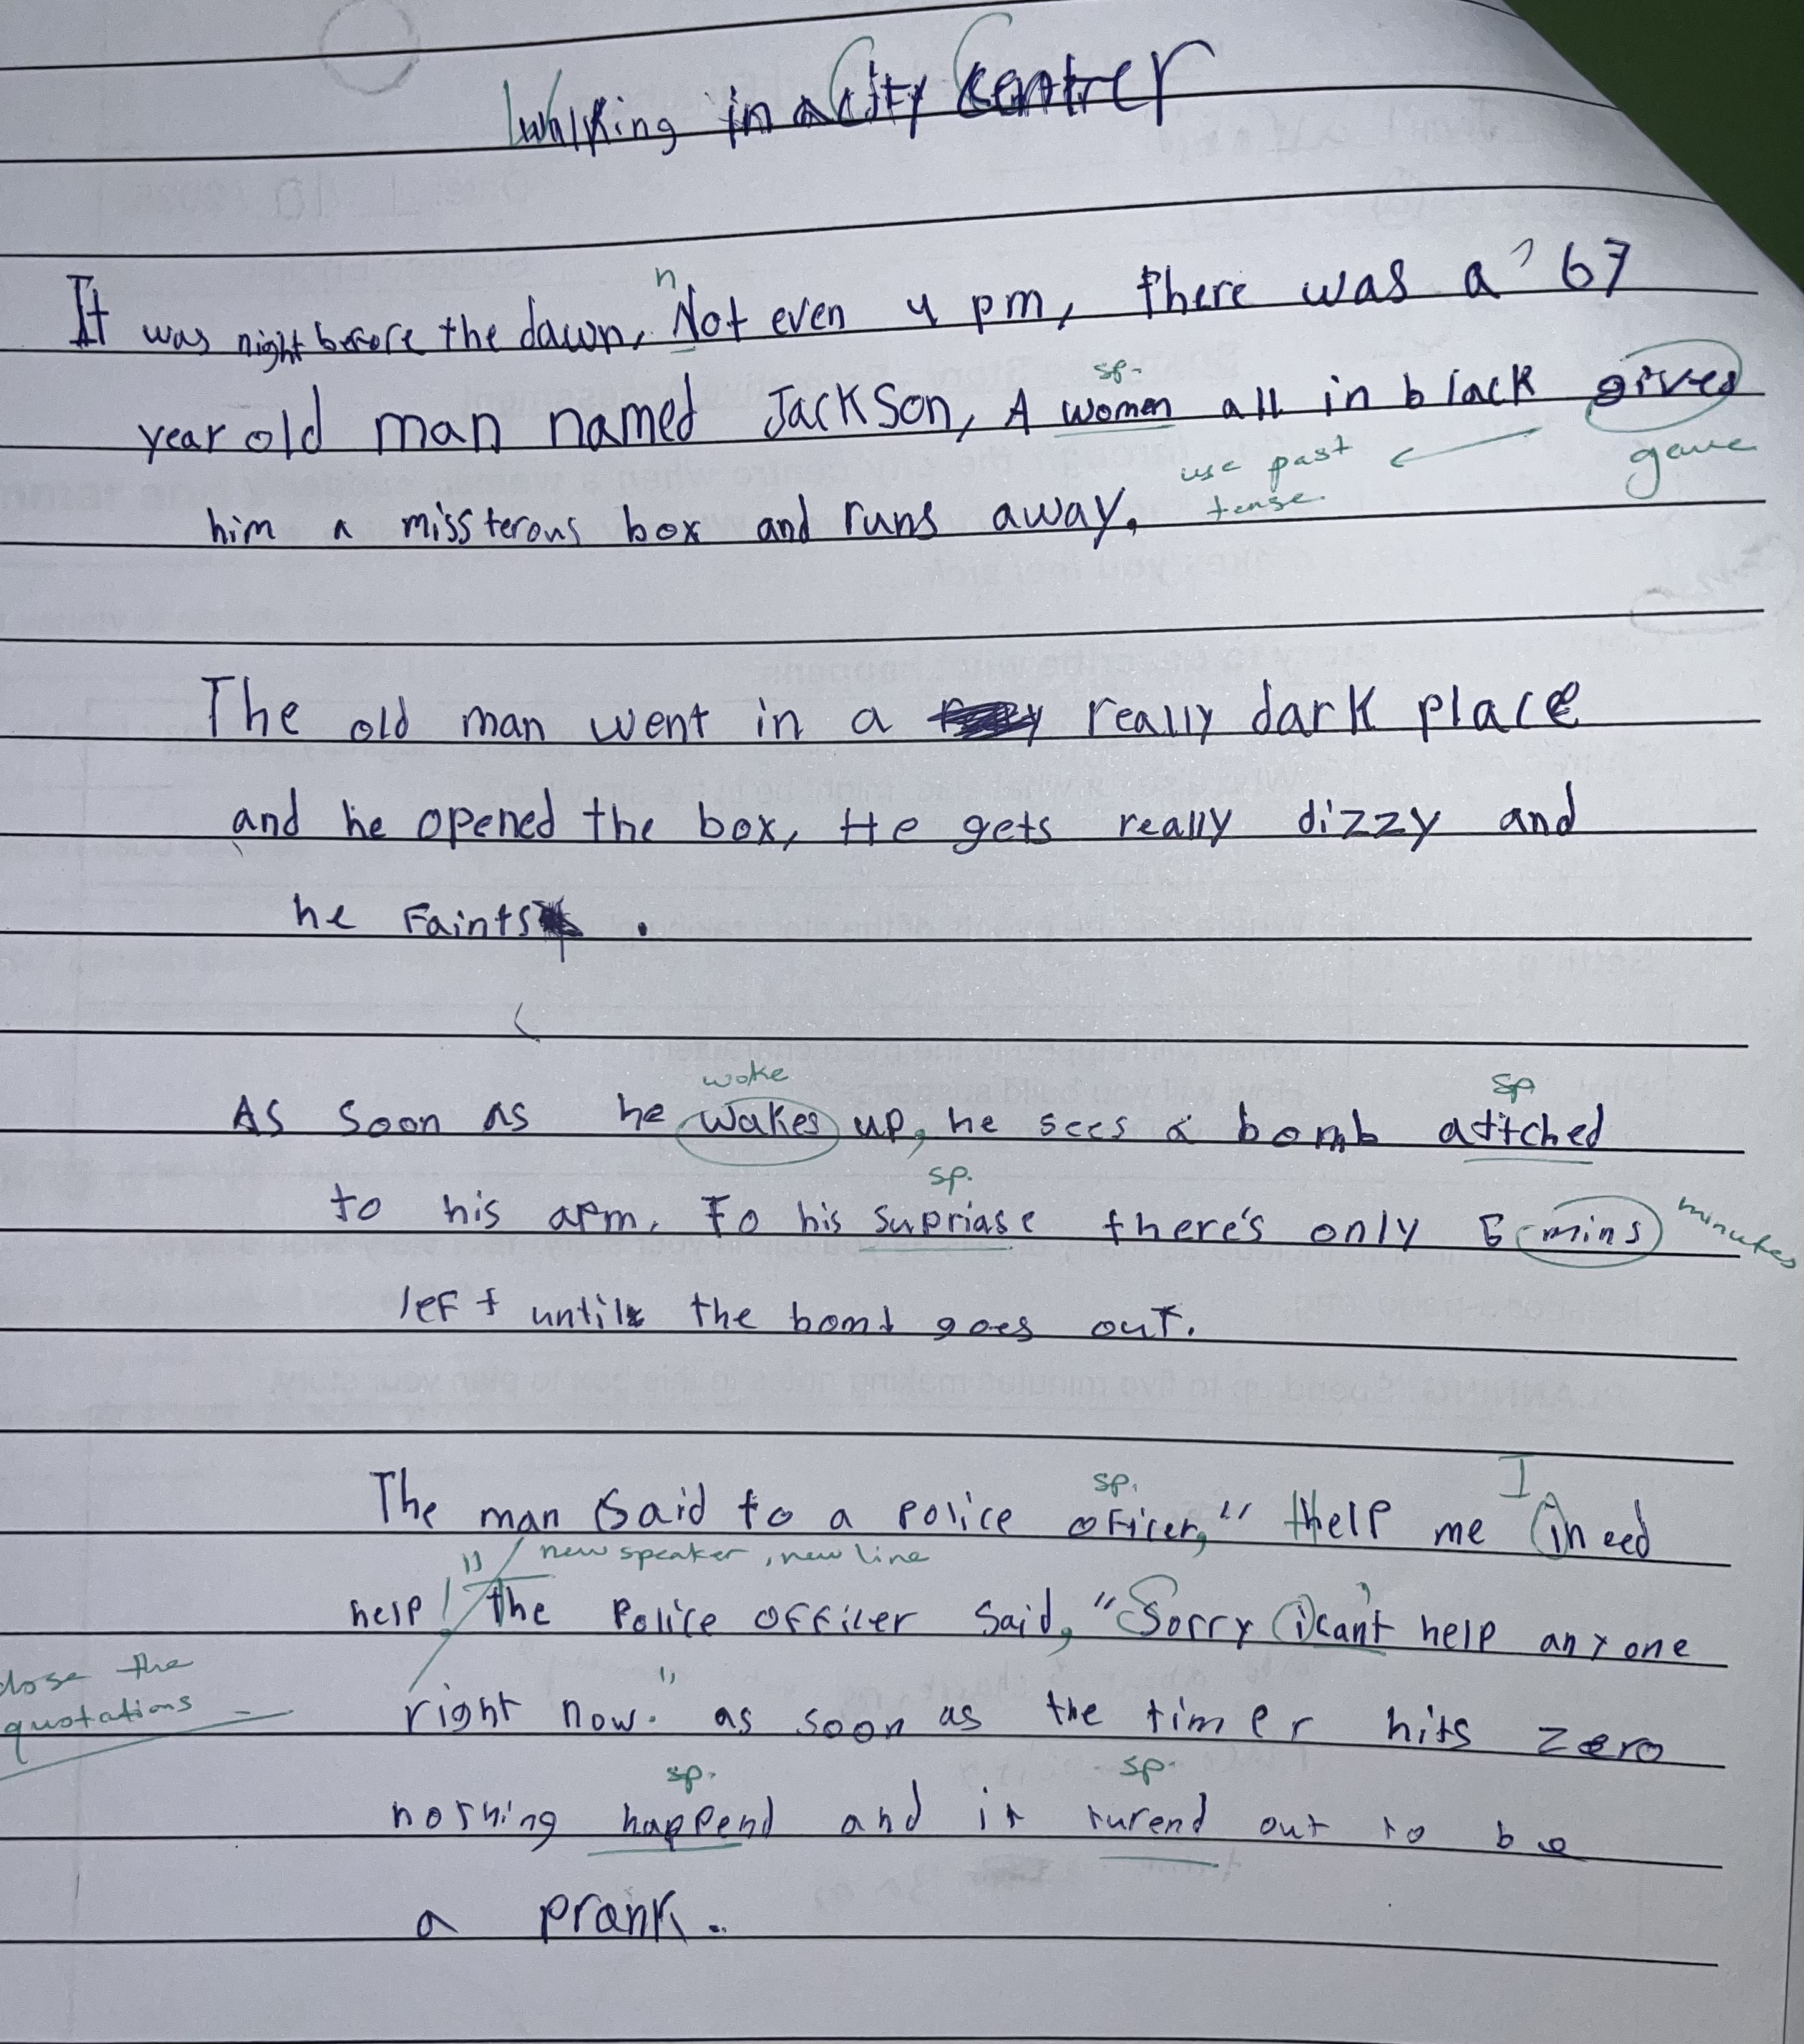 Walking in a City Center
n
It was night before the dawn, Not even 4 pm, there was a 67
sp.
year old man named Jackson, A women all in black gives
use past tense.
gave
him a missterous box and runs away.
The old man went in a really dark place
and he opened the box, He gets really dizzy and
he Faints .
woke
sp
As soon as he wakes up, he sees a bomb attched
sp.
to his arm. To his supriase there's only 5 mins minutes
left until the bomb goes out.
sp.
I
The man said to a police oficer, "Help me i need
" new speaker, new line
help! the Police officer said, "Sorry i can't help anyone
close the
quotations
right now." as soon as the timer hits zero
sp.
sp.
nothing happend and it turend out to be
a prank.